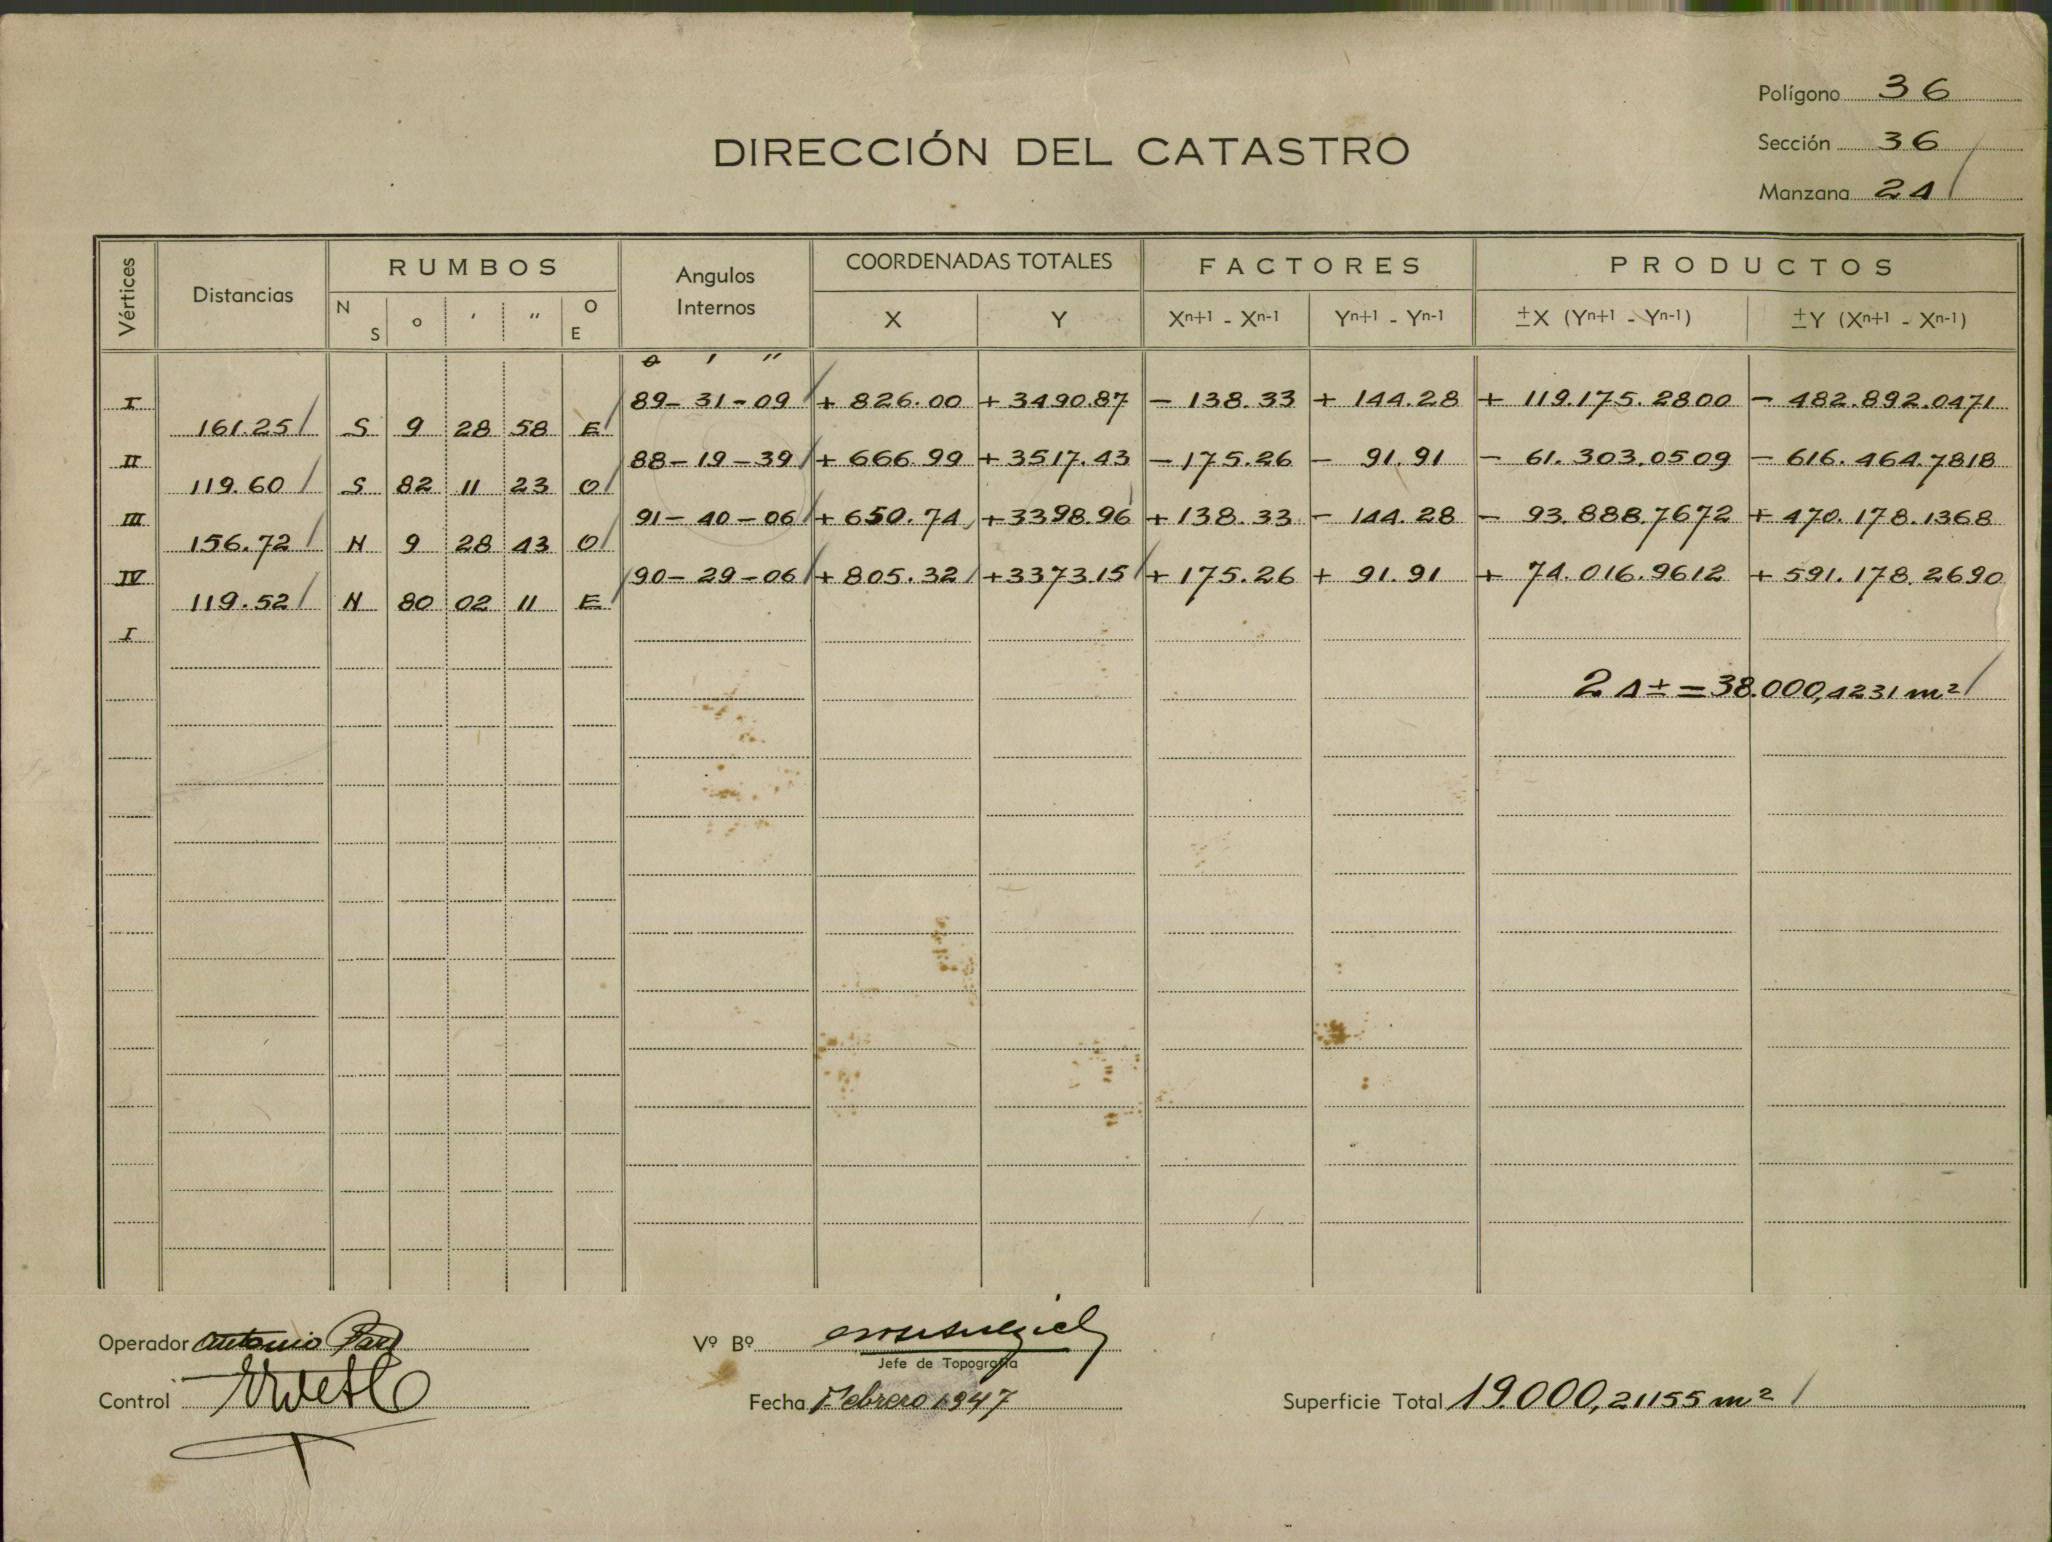 Polígono 36
DIRECCIÓN DEL CATASTRO
Sección 36
Manzana 24
Vértices Distancias RUMBOS Angulos Internos COORDENADAS TOTALES FACTORES PRODUCTOS
N S o ' " O E X Y Xn+1 - Xn-1 Yn+1 - Yn-1 ±X (Yn+1 - Yn-1) ±Y (Xn+1 - Xn-1)
o ' "
I 89-31-09 + 826.00 + 3490.87 - 138.33 + 144.28 + 119.175.2800 - 482.892.0471
161.25 S 9 28 58 E
II 88-19-39 + 666.99 + 3517.43 - 175.26 - 91.91 - 61.303.0509 - 616.464.7818
119.60 S 82 11 23 O
III 91-40-06 + 650.74 + 3398.96 + 138.33 - 144.28 - 93.888.7672 + 470.178.1368
156.72 N 9 28 43 O
IV 90-29-06 + 805.32 + 3373.15 + 175.26 + 91.91 + 74.016.9612 + 591.178.2690
119.52 N 80 02 11 E
I
2 A ± = 38.000,4231 m²
Operador Antonio
Vº Bº
Jefe de Topografía
Control
Fecha Febrero 1947
Superficie Total 19.000,21155 m²